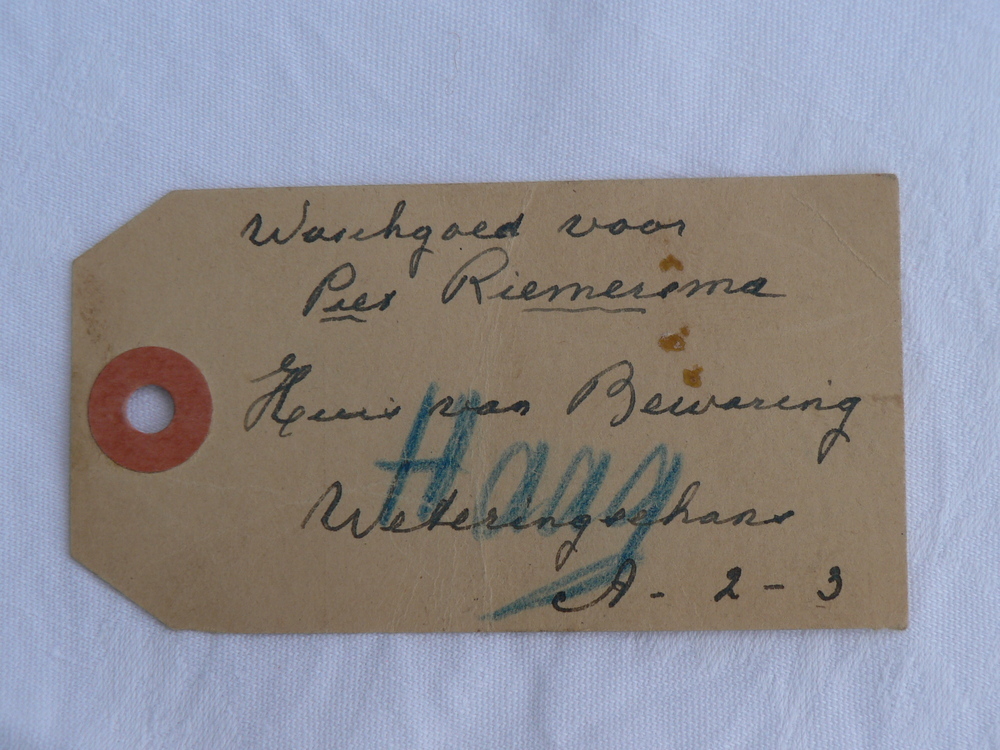 Waschgoed voor
Piet Riemersma
Huis van Bewaring
Haag
Weteringschans
A - 2 - 3